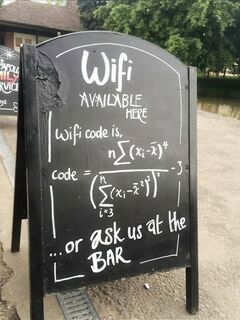 Wifi
AVAILABLE
HERE
Wifi code is,
code = n∑(xᵢ-x̄)⁴ / (n∑i=3(xᵢ-x̄²)²)² - 3
...or ask us at the
BAR